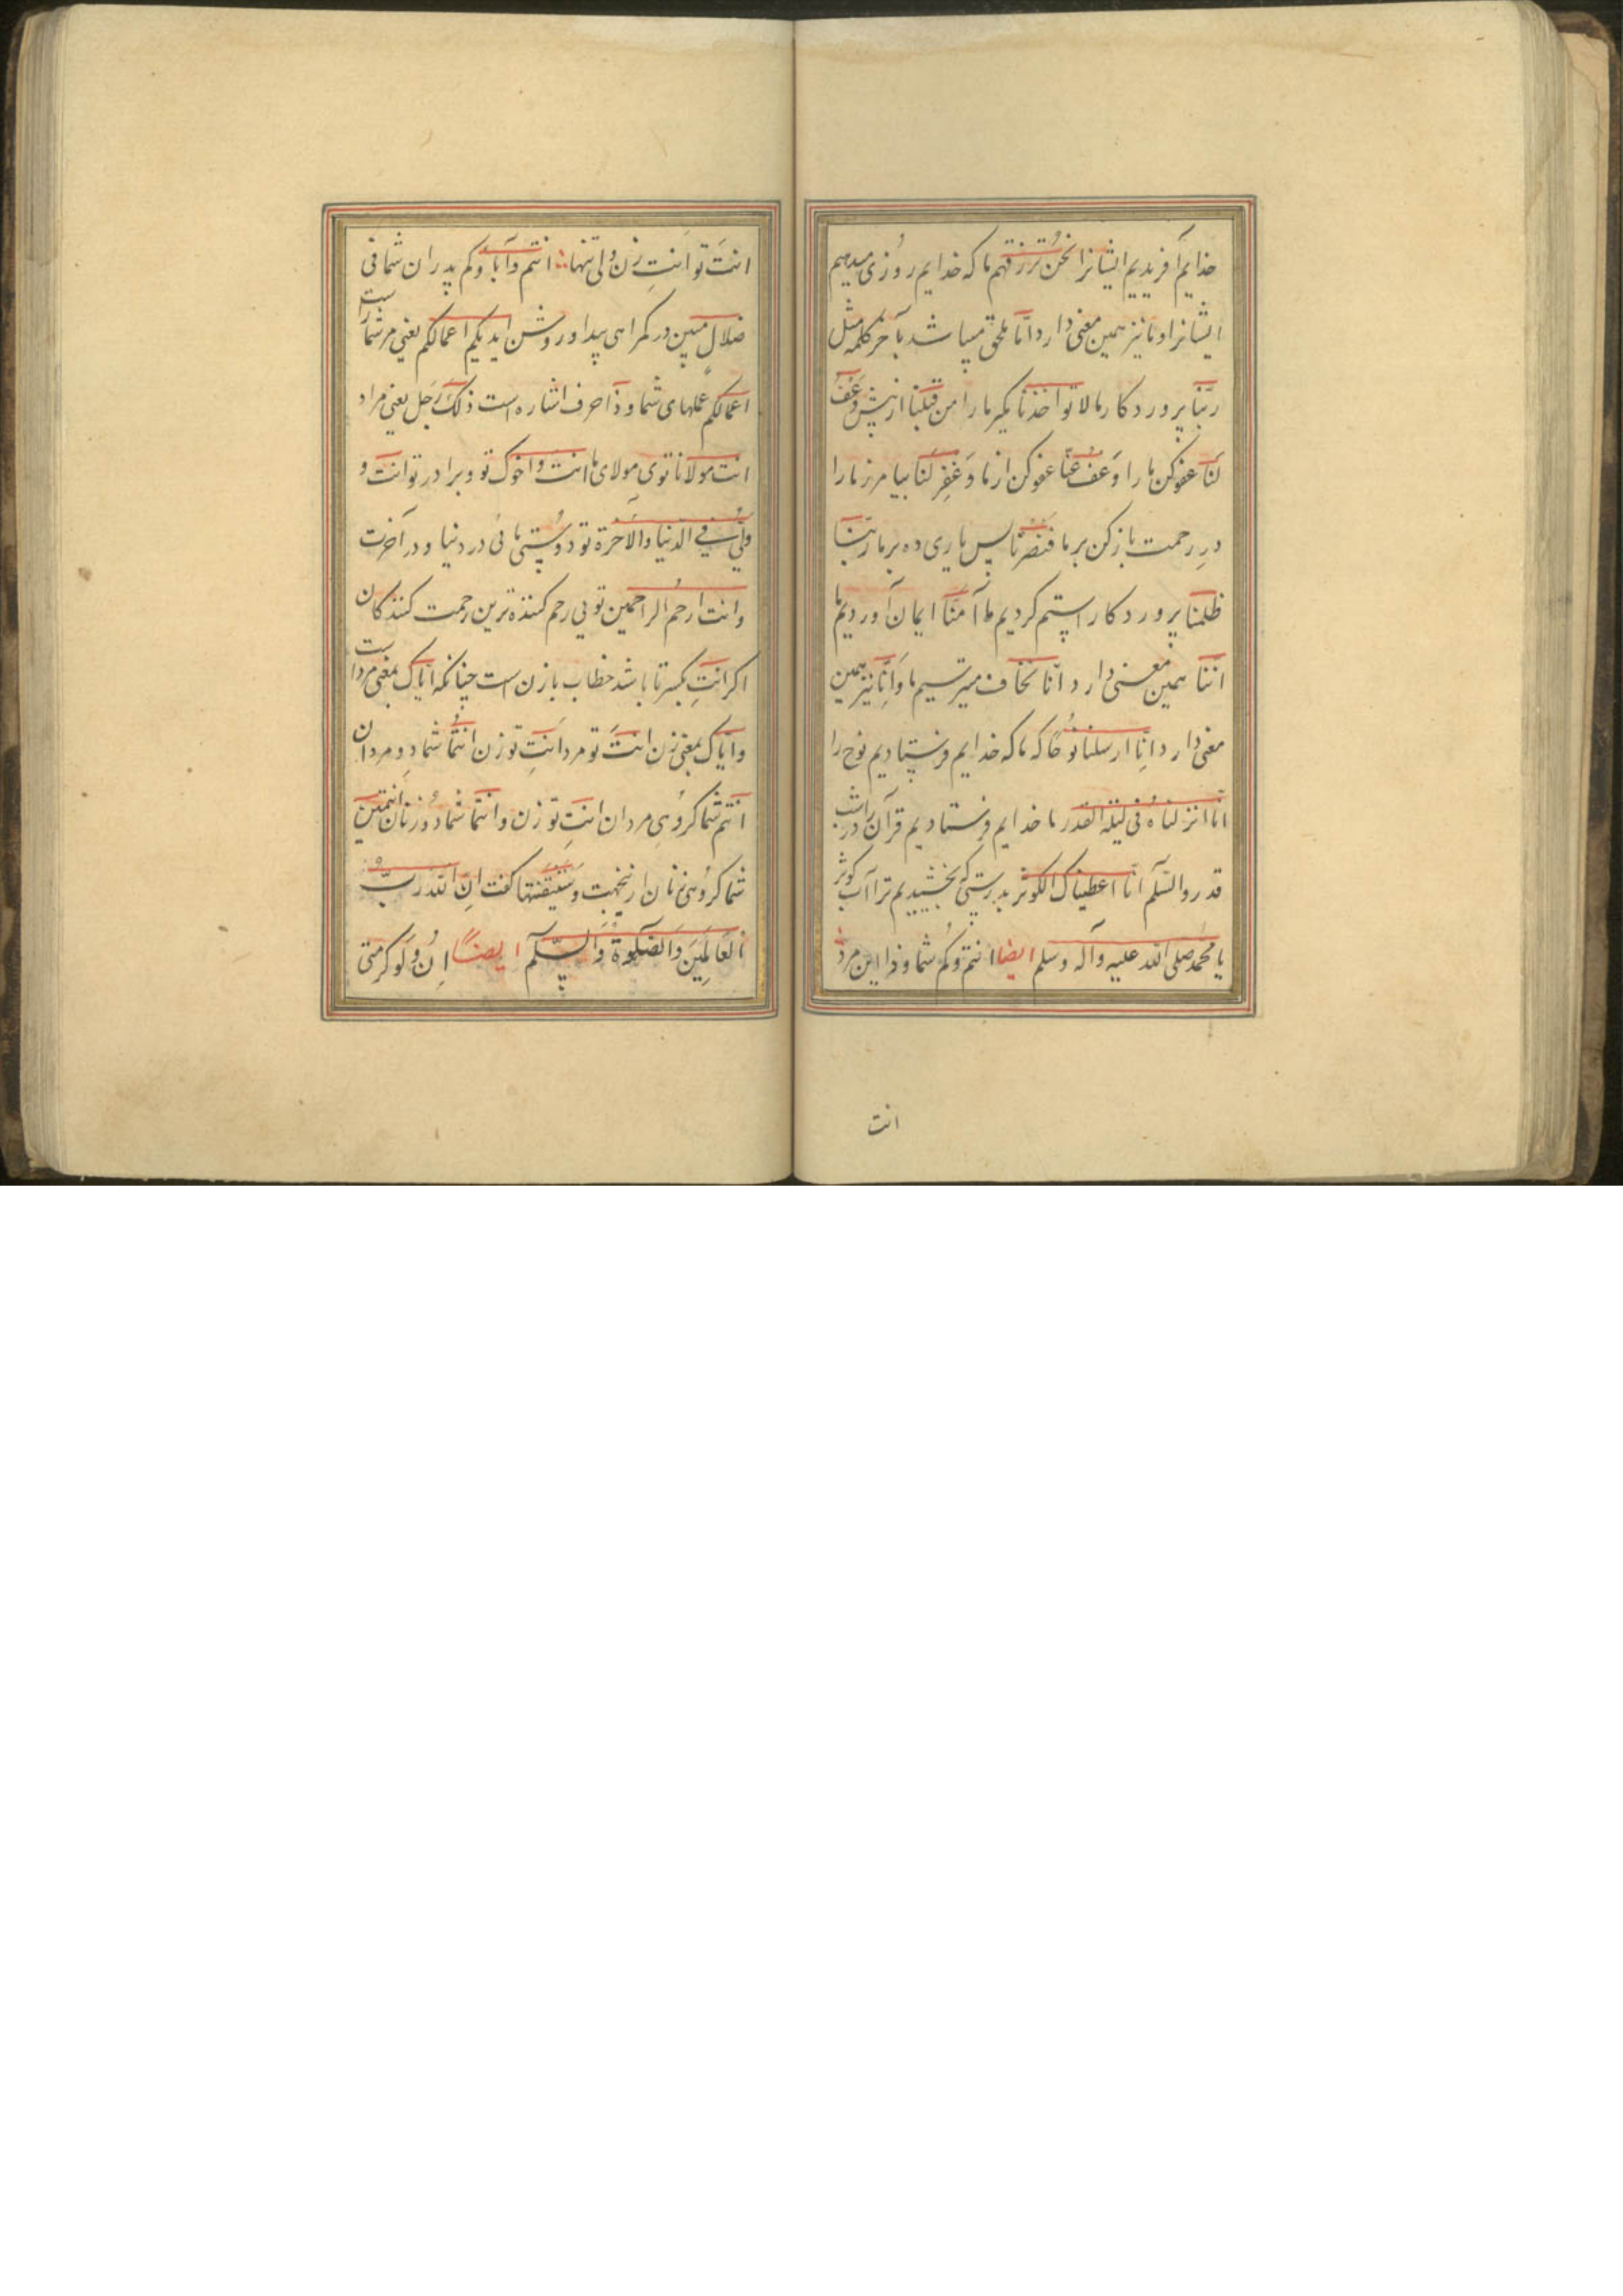 خدایم آفریدیم ایشانرا نحن نرزقهم ما که خدایم روزی میدهیم
ایشانرا و نا نیز همین معنی دارد انّا ملحق میباشد بآخر کلمه مثل
ربّنا پروردکار ما لا تواخذنا مکیر ما را من قبلنا از پیش وَعْفُ
لَنَا عفو کن ما را وَعْفُ عَنّا عفو کن از ما وَغْفِر لَنَا بیامرز ما را
درِ رحمت باز کن بر ما فَنصرنا پس یاری ده بر ما ربّنا
ظلمنا پروردکارا ستم کردیم ما آمَنّا ایمان آوردیم ما
اننا همین معنی دارد انّنا نخاف میترسیم ما وَاِنّا نیز همین
معنی دارد اِنّا ارسلنا نوُحًا که ما که خدایم فرستادیم نوح را
انّا انزلناهُ فی لیلة القدر ما خدایم فرستادیم قرآن را در شب
قدر والسّلم انّا اعطیناک الکوثر بدرستی که بخشیدیم ترا آب کوثر
یا محمّد صلی الله علیه وآله وسلم ایضا انتم وکُم شما و ذا این مرد
انت
انتَ تو اَنتِ زن ولی تنها انتم وآباوکم پدران شما فی
ضلالٍ مبین در کمراهی پیدا و روشن ایدیکم اعمالکم یعنی مر شما راست
اعمالکم عملهای شما و ذا حرف اشاره است ذلکَ رَجل یعنی مراد
انت مولانا توی مولای ما انت واخوک تو و برادر تو انت و
ولیّ فی الدنیا والآخرة تو دوستی مائی در دنیا و در آخرت
وانت ارحمُ الراحمین تویی رحم کننده ترین رحمت کنندکان
اکر انتِ بکسر تا باشد خطاب با زن است چنانکه ایّاک بمعنی مرد است
وایّاک بمعنی زن انتَ تو مرد اَنتِ تو زن انتُما شما دو مردان
انتم شما کروُهی مردان انتِ تو زن وانتُما شما دو زنان انتن
شما کروهی زنان ازینجهت وَ کفت انّ اللهَ ربُّ
العَالَمِینَ وَالصَّلوةُ وَالسَّلم ایضاً اِن وَلَو کر متی